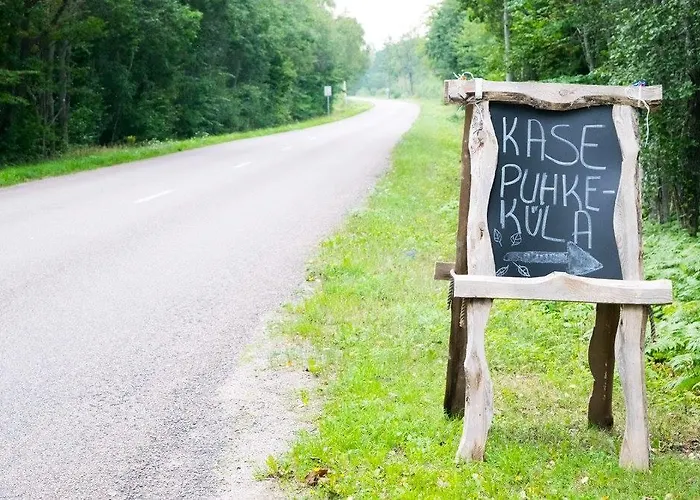 KASE
PUHKE-
KÜLA